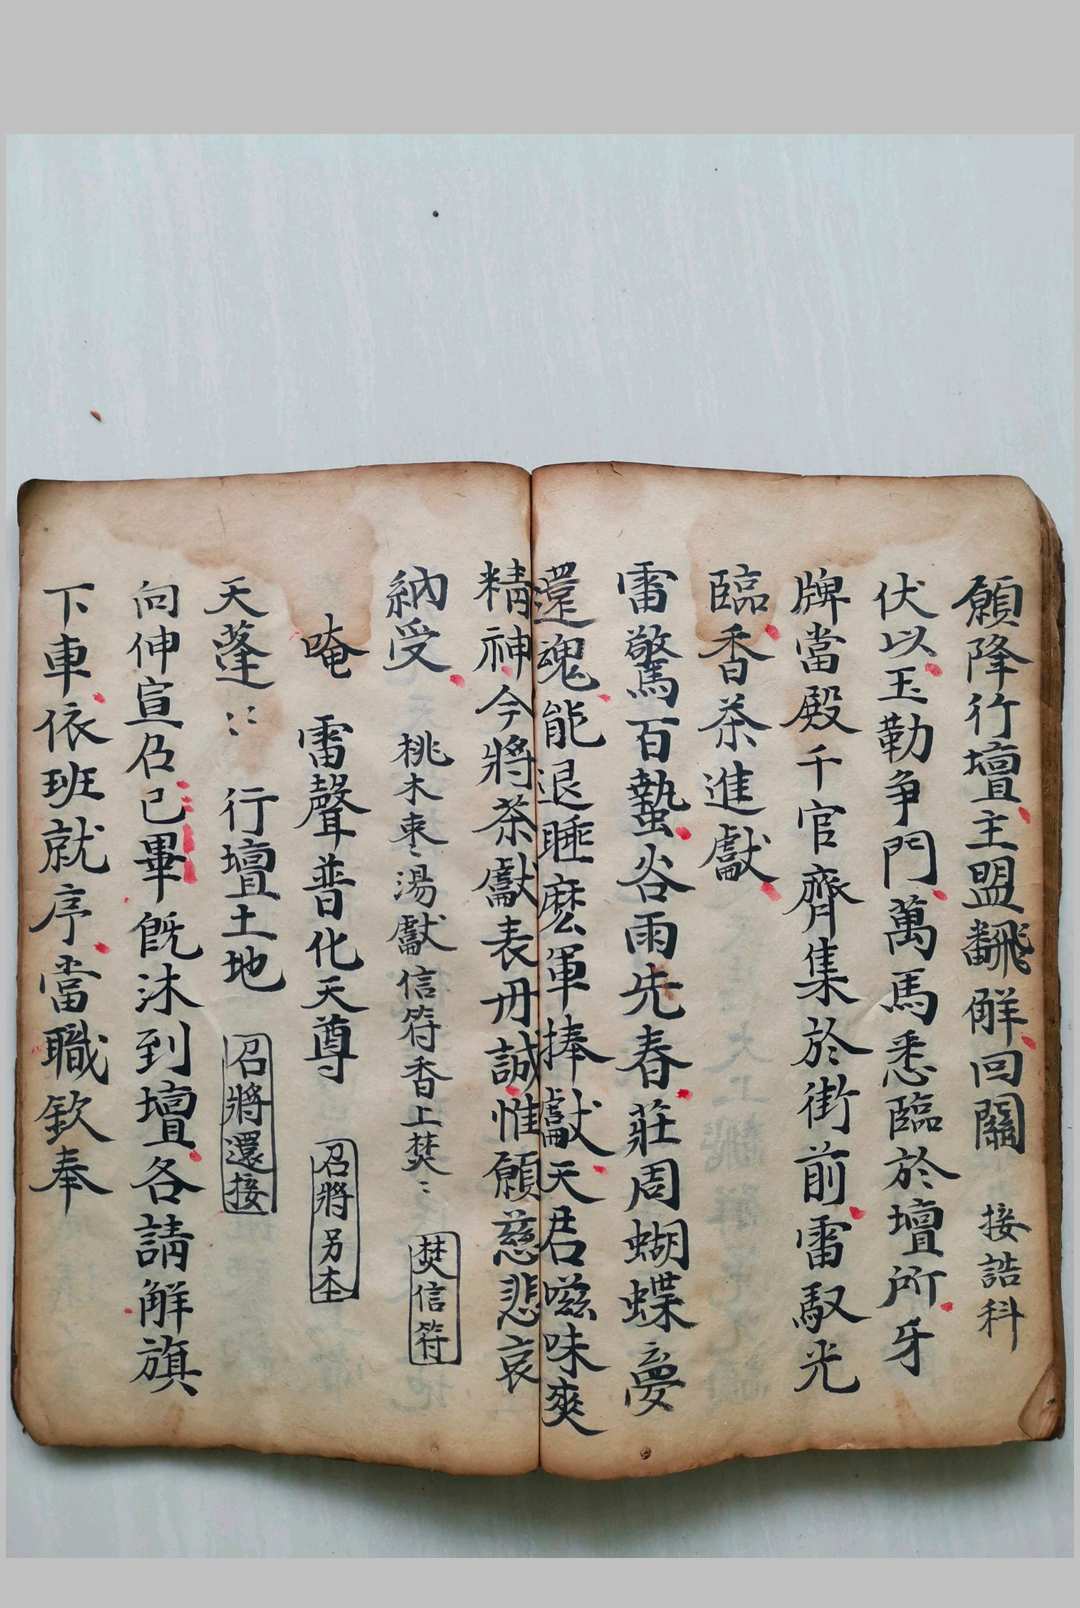 願降行壇主盟飜解回關 接誥科
伏以玉勒争門萬馬悉臨於壇所牙
牌當殿千官齊集於街前雷馭光
臨香茶進獻
雷驚百蟄谷雨先春莊周蝴蝶夢
還魂能退睡麽軍捧獻天君嗞味爽
精神今將茶獻表丹誠惟願慈悲哀
納受 桃木枣湯獻信符香上焚〻 焚信符
唵 雷聲普化天尊 召將另本
天蓬〻 行壇土地 召將還接
向伸宣召已畢既沐到壇各請解旗
下車依班就序當職欽奉